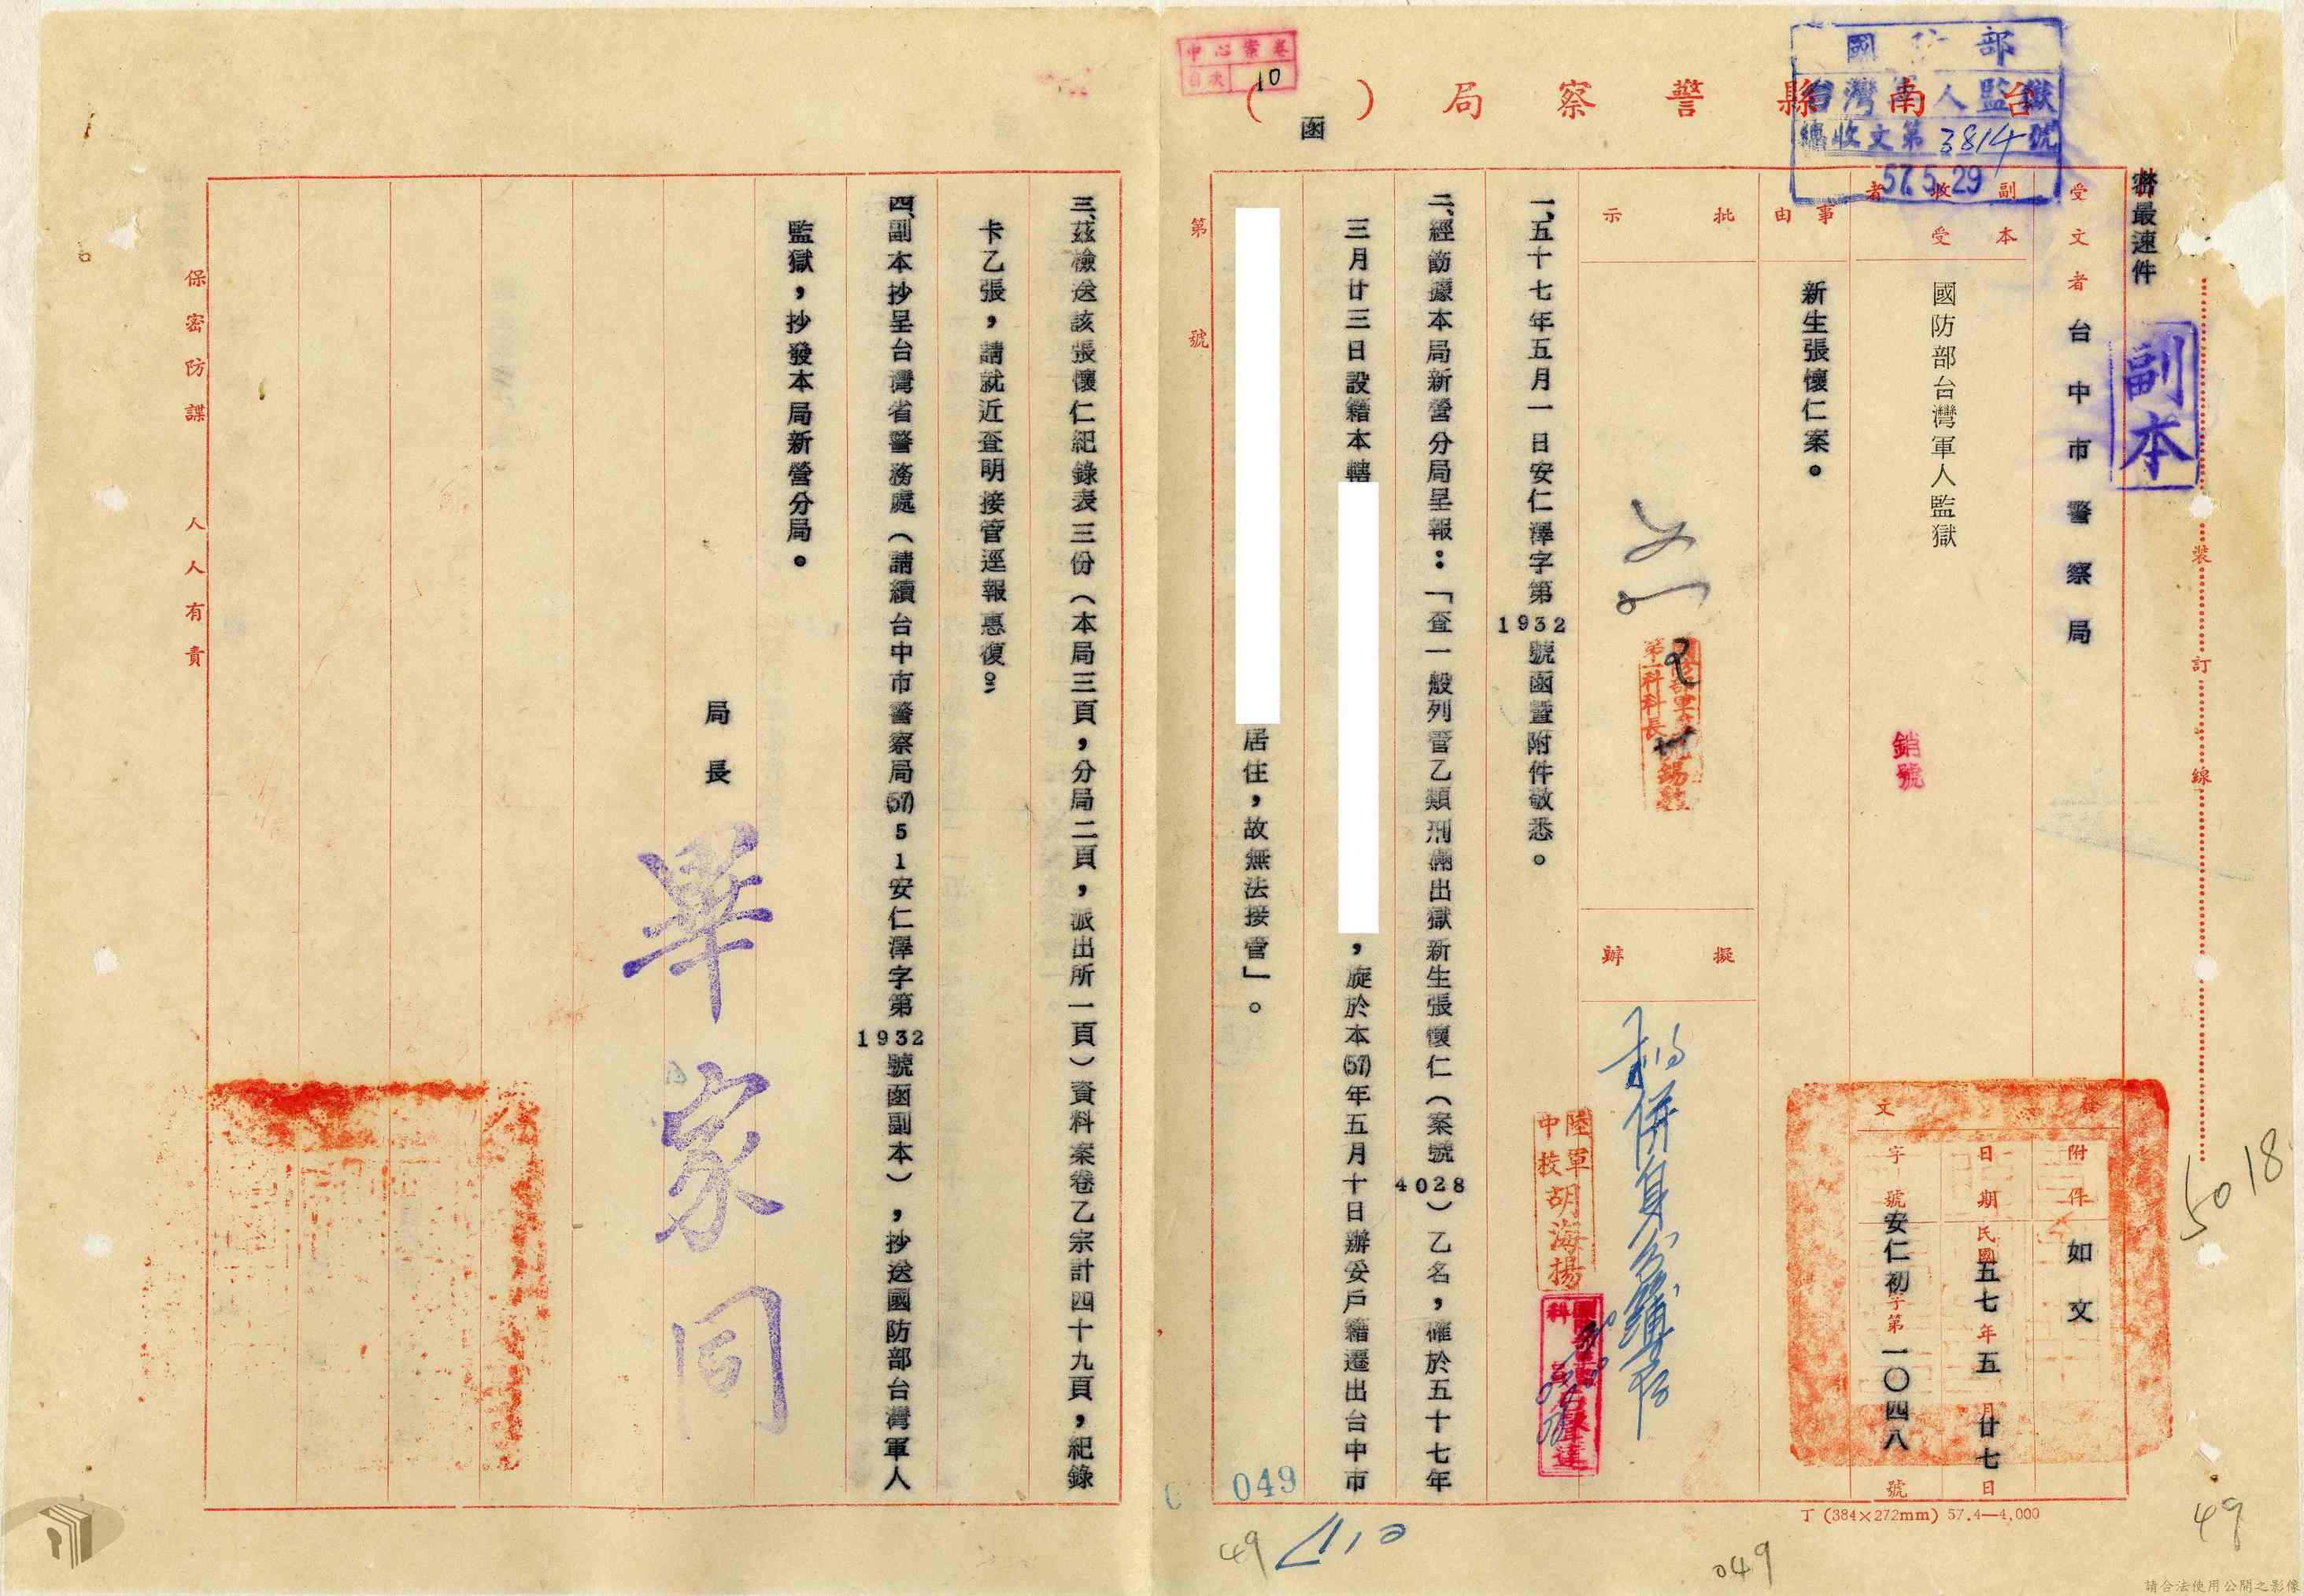 中心案卷
目次 10
台南縣警察局( )
函
國防部
台灣軍人監獄
總收文第3814號
57.5.29
密最速件
副本
裝訂線
受文者 台中市警察局
副本收受者 國防部台灣軍人監獄
銷號
事由 新生張懷仁案。
附件 如文
發文
日期 民國五七年五月廿七日
字號 安仁初字第一〇四八號
批示
擬辦
第一科科長
陸軍中校胡海揚
一、五十七年五月一日安仁澤字第1932號函暨附件敬悉。
二、經飭據本局新營分局呈報:「查一般列管乙類刑滿出獄新生張懷仁(案號4028)乙名,確於五十七年
三月廿三日設籍本轄
,旋於本(57)年五月十日辦妥戶籍遷出台中市
居住,故無法接管」。
第 號
三、茲檢送該張懷仁紀錄表三份(本局三頁,分局二頁,派出所一頁)資料案卷乙宗計四十九頁,紀錄
卡乙張,請就近查明接管逕報惠復。
四、副本抄呈台灣省警務處(請續台中市警察局(57)51安仁澤字第1932號函副本),抄送國防部台灣軍人
監獄,抄發本局新營分局。
局長 畢家同
保密防諜 人人有責
049
丁(384×272mm) 57.4—4,000
5018
49
049
49
請合法使用公開之影像